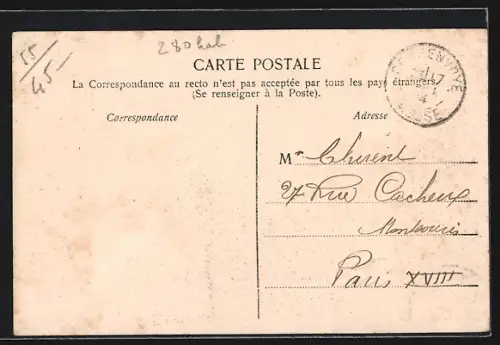 280 hab
55/
45-
CARTE POSTALE
La Correspondance au recto n'est pas acceptée par tous les pays étrangers.
(Se renseigner à la Poste).
Correspondance
Adresse
MEUSE
M^r
27 Rue Cacheux
Montsouris
Paris XVIII